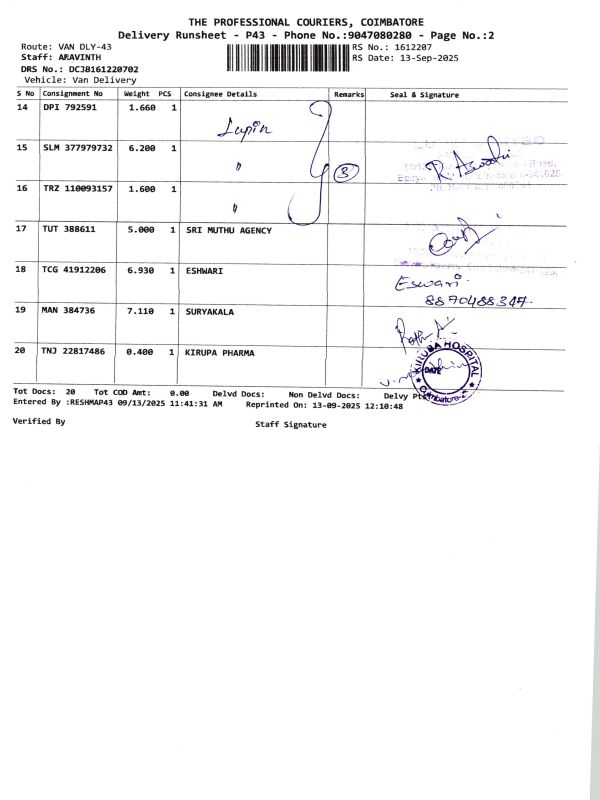 THE PROFESSIONAL COURIERS, COIMBATORE
Delivery Runsheet - P43 - Phone No.:9047080280 - Page No.:2
Route: VAN DLY-43 RS No.: 1612207
Staff: ARAVINTH RS Date: 13-Sep-2025
DRS No.: DCJB161220702
Vehicle: Van Delivery
S No Consignment No Weight PCS Consignee Details Remarks Seal & Signature
14 DPI 792591 1.660 1 Lupin
15 SLM 377979732 6.200 1 〃 3
16 TRZ 110093157 1.600 1 〃
17 TUT 388611 5.000 1 SRI MUTHU AGENCY
18 TCG 41912206 6.930 1 ESHWARI Eswari
8870488347
19 MAN 384736 7.110 1 SURYAKALA
20 TNJ 22817486 0.400 1 KIRUPA PHARMA
KIRUBA HOSPITAL
DATE
Coimbatore-2
Tot Docs: 20 Tot COD Amt: 0.00 Delvd Docs: Non Delvd Docs: Delvy
Entered By :RESHMAP43 09/13/2025 11:41:31 AM Reprinted On: 13-09-2025 12:10:48
Verified By Staff Signature